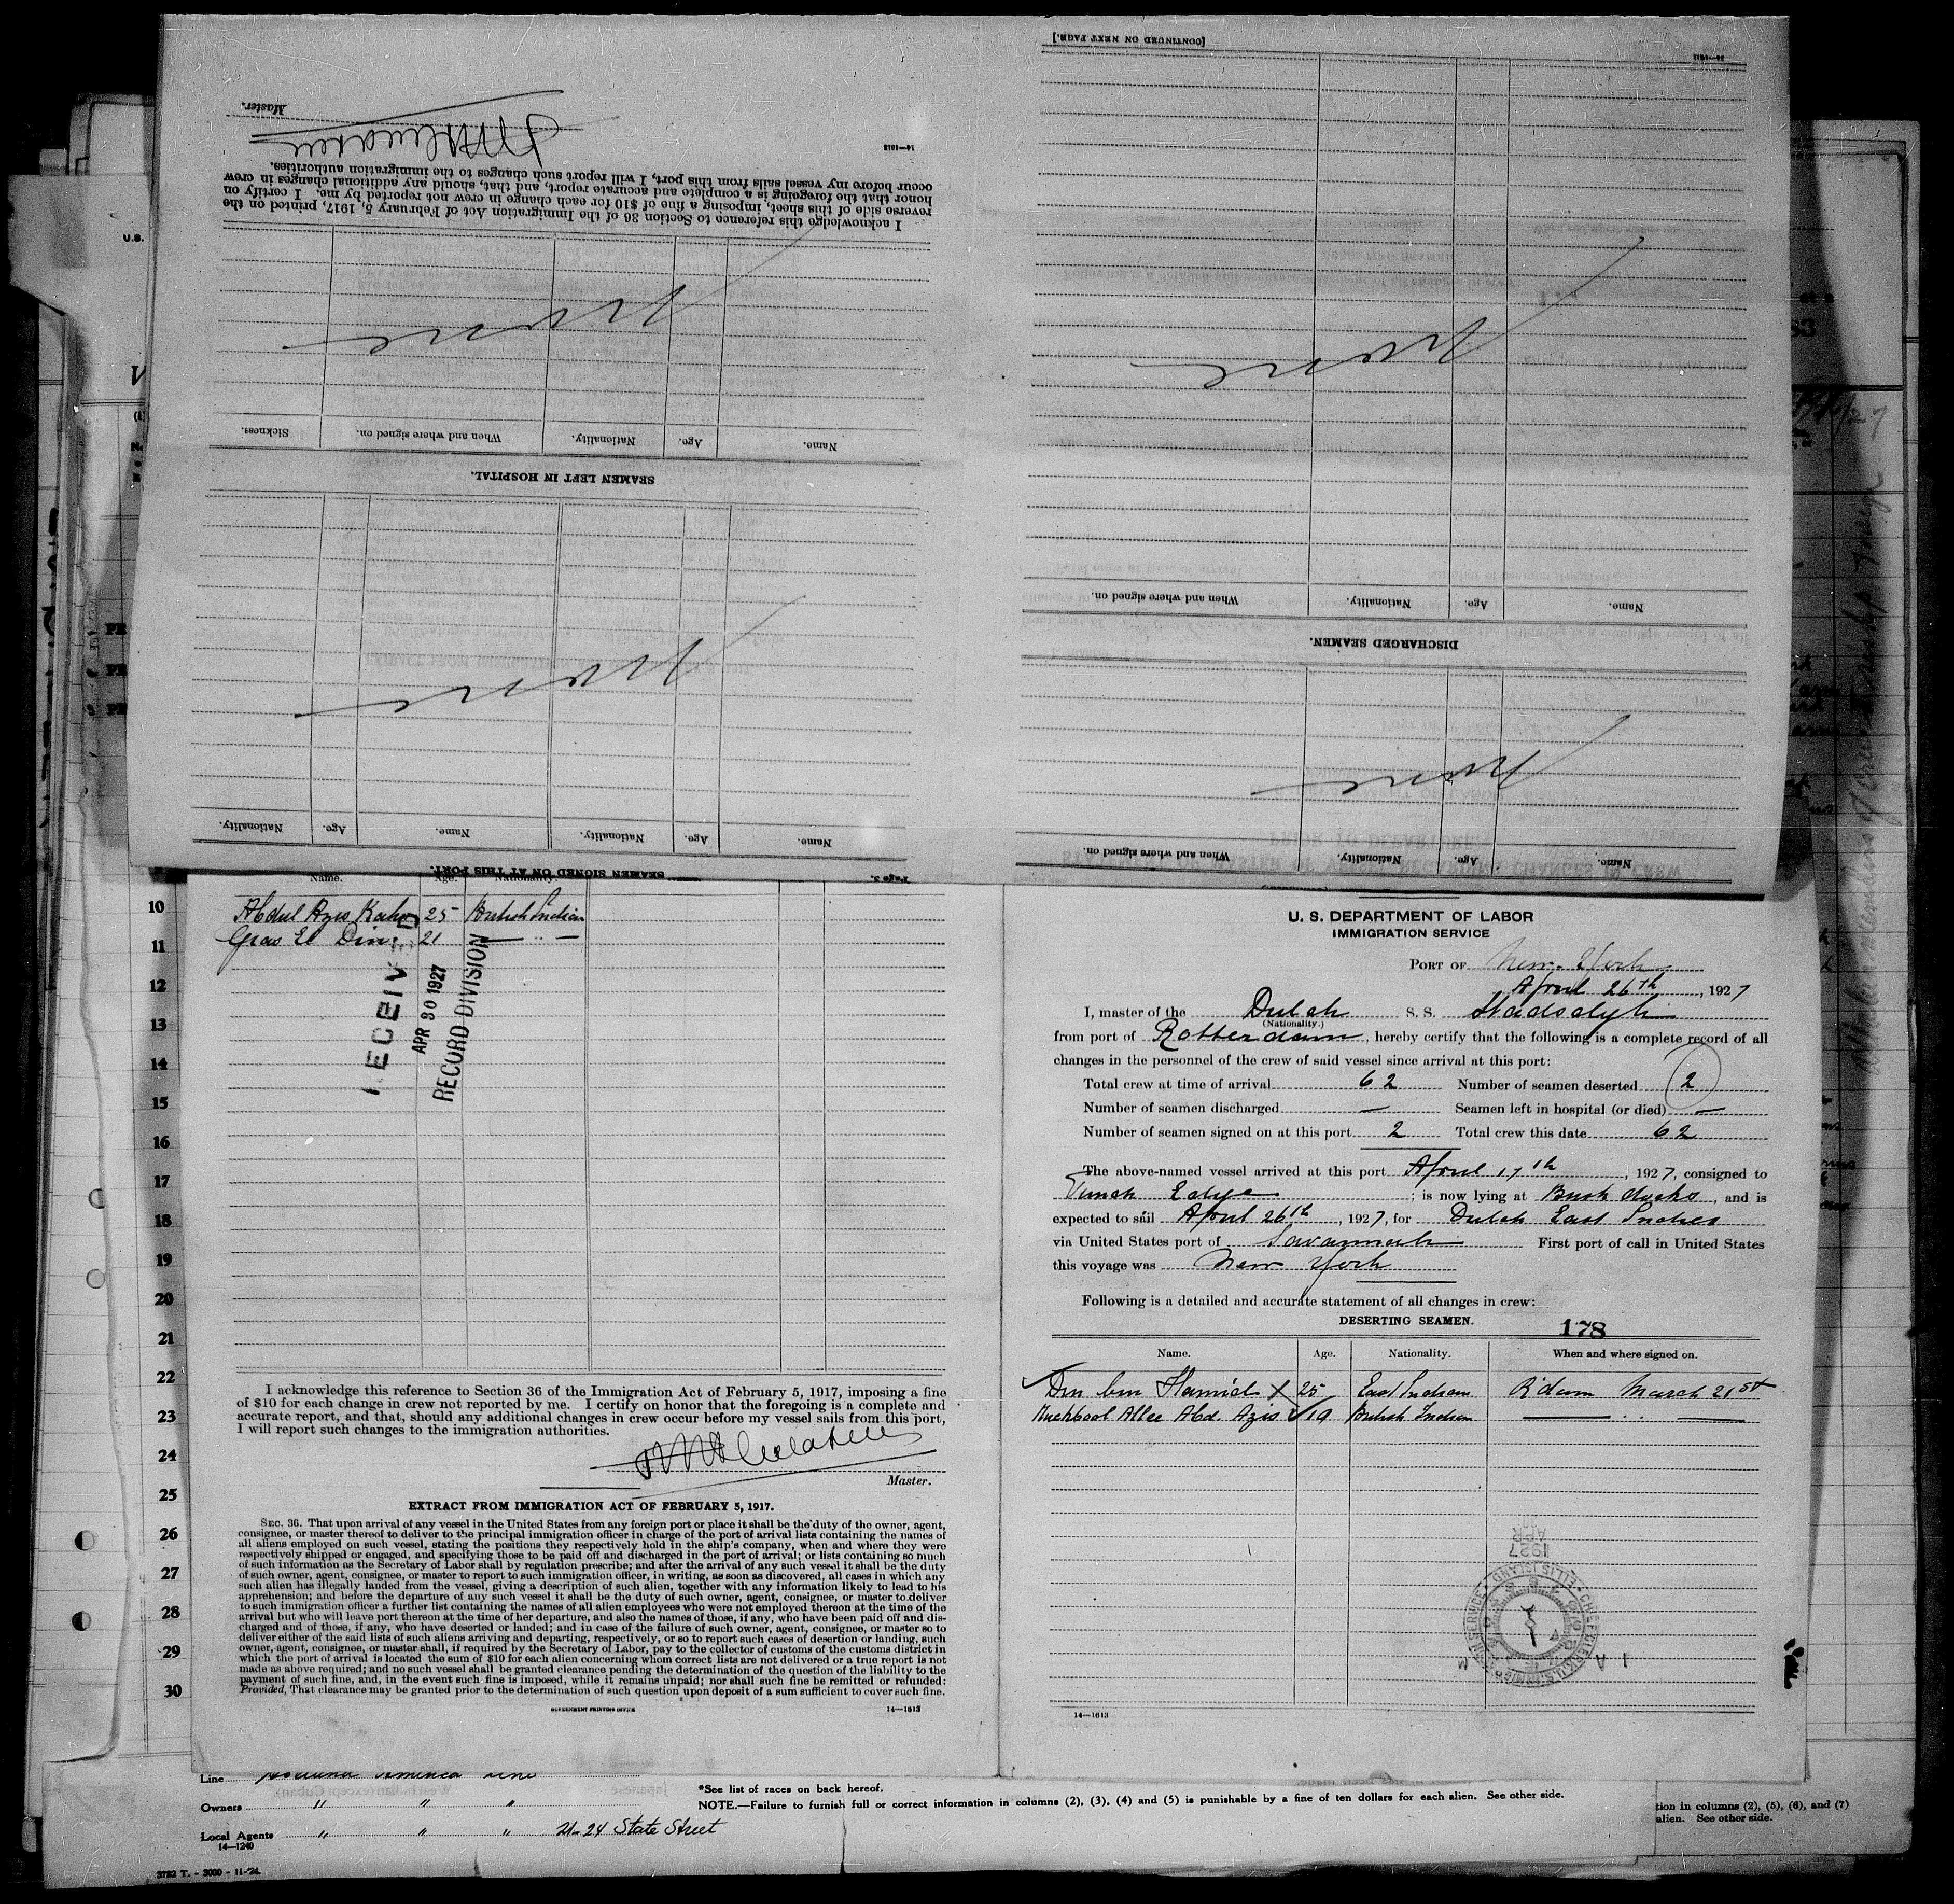 [CONTINUED ON NEXT PAGE.]
14—1613
Name. Age. Nationality. When and where signed on.
DISCHARGED SEAMEN.
None
Name. Age. Nationality. When and where signed on.
None
Master.
14—1613
I acknowledge this reference to Section 36 of the Immigration Act of February 5, 1917, printed on the
reverse side of this sheet, imposing a fine of $10 for each change in crew not reported by me. I certify on
honor that the foregoing is a complete and accurate report, and that, should any additional changes in crew
occur before my vessel sails from this port, I will report such changes to the immigration authorities.
None
Name. Age. Nationality. When and where signed on. Sickness.
SEAMEN LEFT IN HOSPITAL.
None
Name. Age. Nationality. Name. Age. Nationality.
SEAMEN SIGNED ON AT THIS PORT.
Page 3
Name. Age. Nationality.
Abdul Azis Kahn 25 British Indian
El Din 21 — " —
RECEIVED
APR 30 1927
RECORD DIVISION
10
11
12
13
14
15
16
17
18
19
20
21
22
23
24
25
26
27
28
29
30
I acknowledge this reference to Section 36 of the Immigration Act of February 5, 1917, imposing a fine
of $10 for each change in crew not reported by me. I certify on honor that the foregoing is a complete and
accurate report, and that, should any additional changes in crew occur before my vessel sails from this port,
I will report such changes to the immigration authorities.
Master.
EXTRACT FROM IMMIGRATION ACT OF FEBRUARY 5, 1917.
SEC. 36. That upon arrival of any vessel in the United States from any foreign port or place it shall be the duty of the owner, agent,
consignee, or master thereof to deliver to the principal immigration officer in charge of the port of arrival lists containing the names of
all aliens employed on such vessel, stating the positions they respectively hold in the ship's company, when and where they were
respectively shipped or engaged, and specifying those to be paid off and discharged in the port of arrival; or lists containing so much
of such information as the Secretary of Labor shall by regulation prescribe; and after the arrival of any such vessel it shall be the duty
of such owner, agent, consignee, or master to report to such immigration officer, in writing, as soon as discovered, all cases in which any
such alien has illegally landed from the vessel, giving a description of such alien, together with any information likely to lead to his
apprehension; and before the departure of any such vessel it shall be the duty of such owner, agent, consignee, or master to deliver
to such immigration officer a further list containing the names of all alien employees who were not employed thereon at the time of the
arrival but who will leave port thereon at the time of her departure, and also the names of those, if any, who have been paid off and dis-
charged and of those, if any, who have deserted or landed; and in case of the failure of such owner, agent, consignee, or master so to
deliver either of the said lists of such aliens arriving and departing, respectively, or so to report such cases of desertion or landing, such
owner, agent, consignee, or master shall, if required by the Secretary of Labor, pay to the collector of customs of the customs district in
which the port of arrival is located the sum of $10 for each alien concerning whom correct lists are not delivered or a true report is not
made as above required; and no such vessel shall be granted clearance pending the determination of the question of the liability to the
payment of such fine, and, in the event such fine is imposed, while it remains unpaid; nor shall such fine be remitted or refunded:
Provided, That clearance may be granted prior to the determination of such question upon deposit of a sum sufficient to cover such fine.
GOVERNMENT PRINTING OFFICE
14—1613
U. S. DEPARTMENT OF LABOR
IMMIGRATION SERVICE
PORT OF New York
April 26th, 1927
I, master of the Dutch S. S.
(Nationality.)
from port of Rotterdam, hereby certify that the following is a complete record of all
changes in the personnel of the crew of said vessel since arrival at this port:
Total crew at time of arrival 62 Number of seamen deserted 2
Number of seamen discharged — Seamen left in hospital (or died) —
Number of seamen signed on at this port 2 Total crew this date 62
The above-named vessel arrived at this port April 17th, 1927, consigned to
Funch Edye; is now lying at Bush docks, and is
expected to sail April 26th, 1927, for Dutch East Indies
via United States port of Savannah First port of call in United States
this voyage was New York
Following is a detailed and accurate statement of all changes in crew:
DESERTING SEAMEN.
178
Name. Age. Nationality. When and where signed on.
Din bin Hamid x 25 East Indian R'dam March 21st
Allee Abd. Azis 19 British Indian — " —
1927
APR
ELLIS ISLAND
14—1613
Line Holland America Line
Owners " " "
Local Agents " " " 21-24 State Street
14—1240
3782 T. - 3000 - 11-'24.
*See list of races on back hereof.
NOTE.—Failure to furnish full or correct information in columns (2), (3), (4) and (5) is punishable by a fine of ten dollars for each alien. See other side.
tion in columns (2), (5), (6), and (7)
alien. See other side.